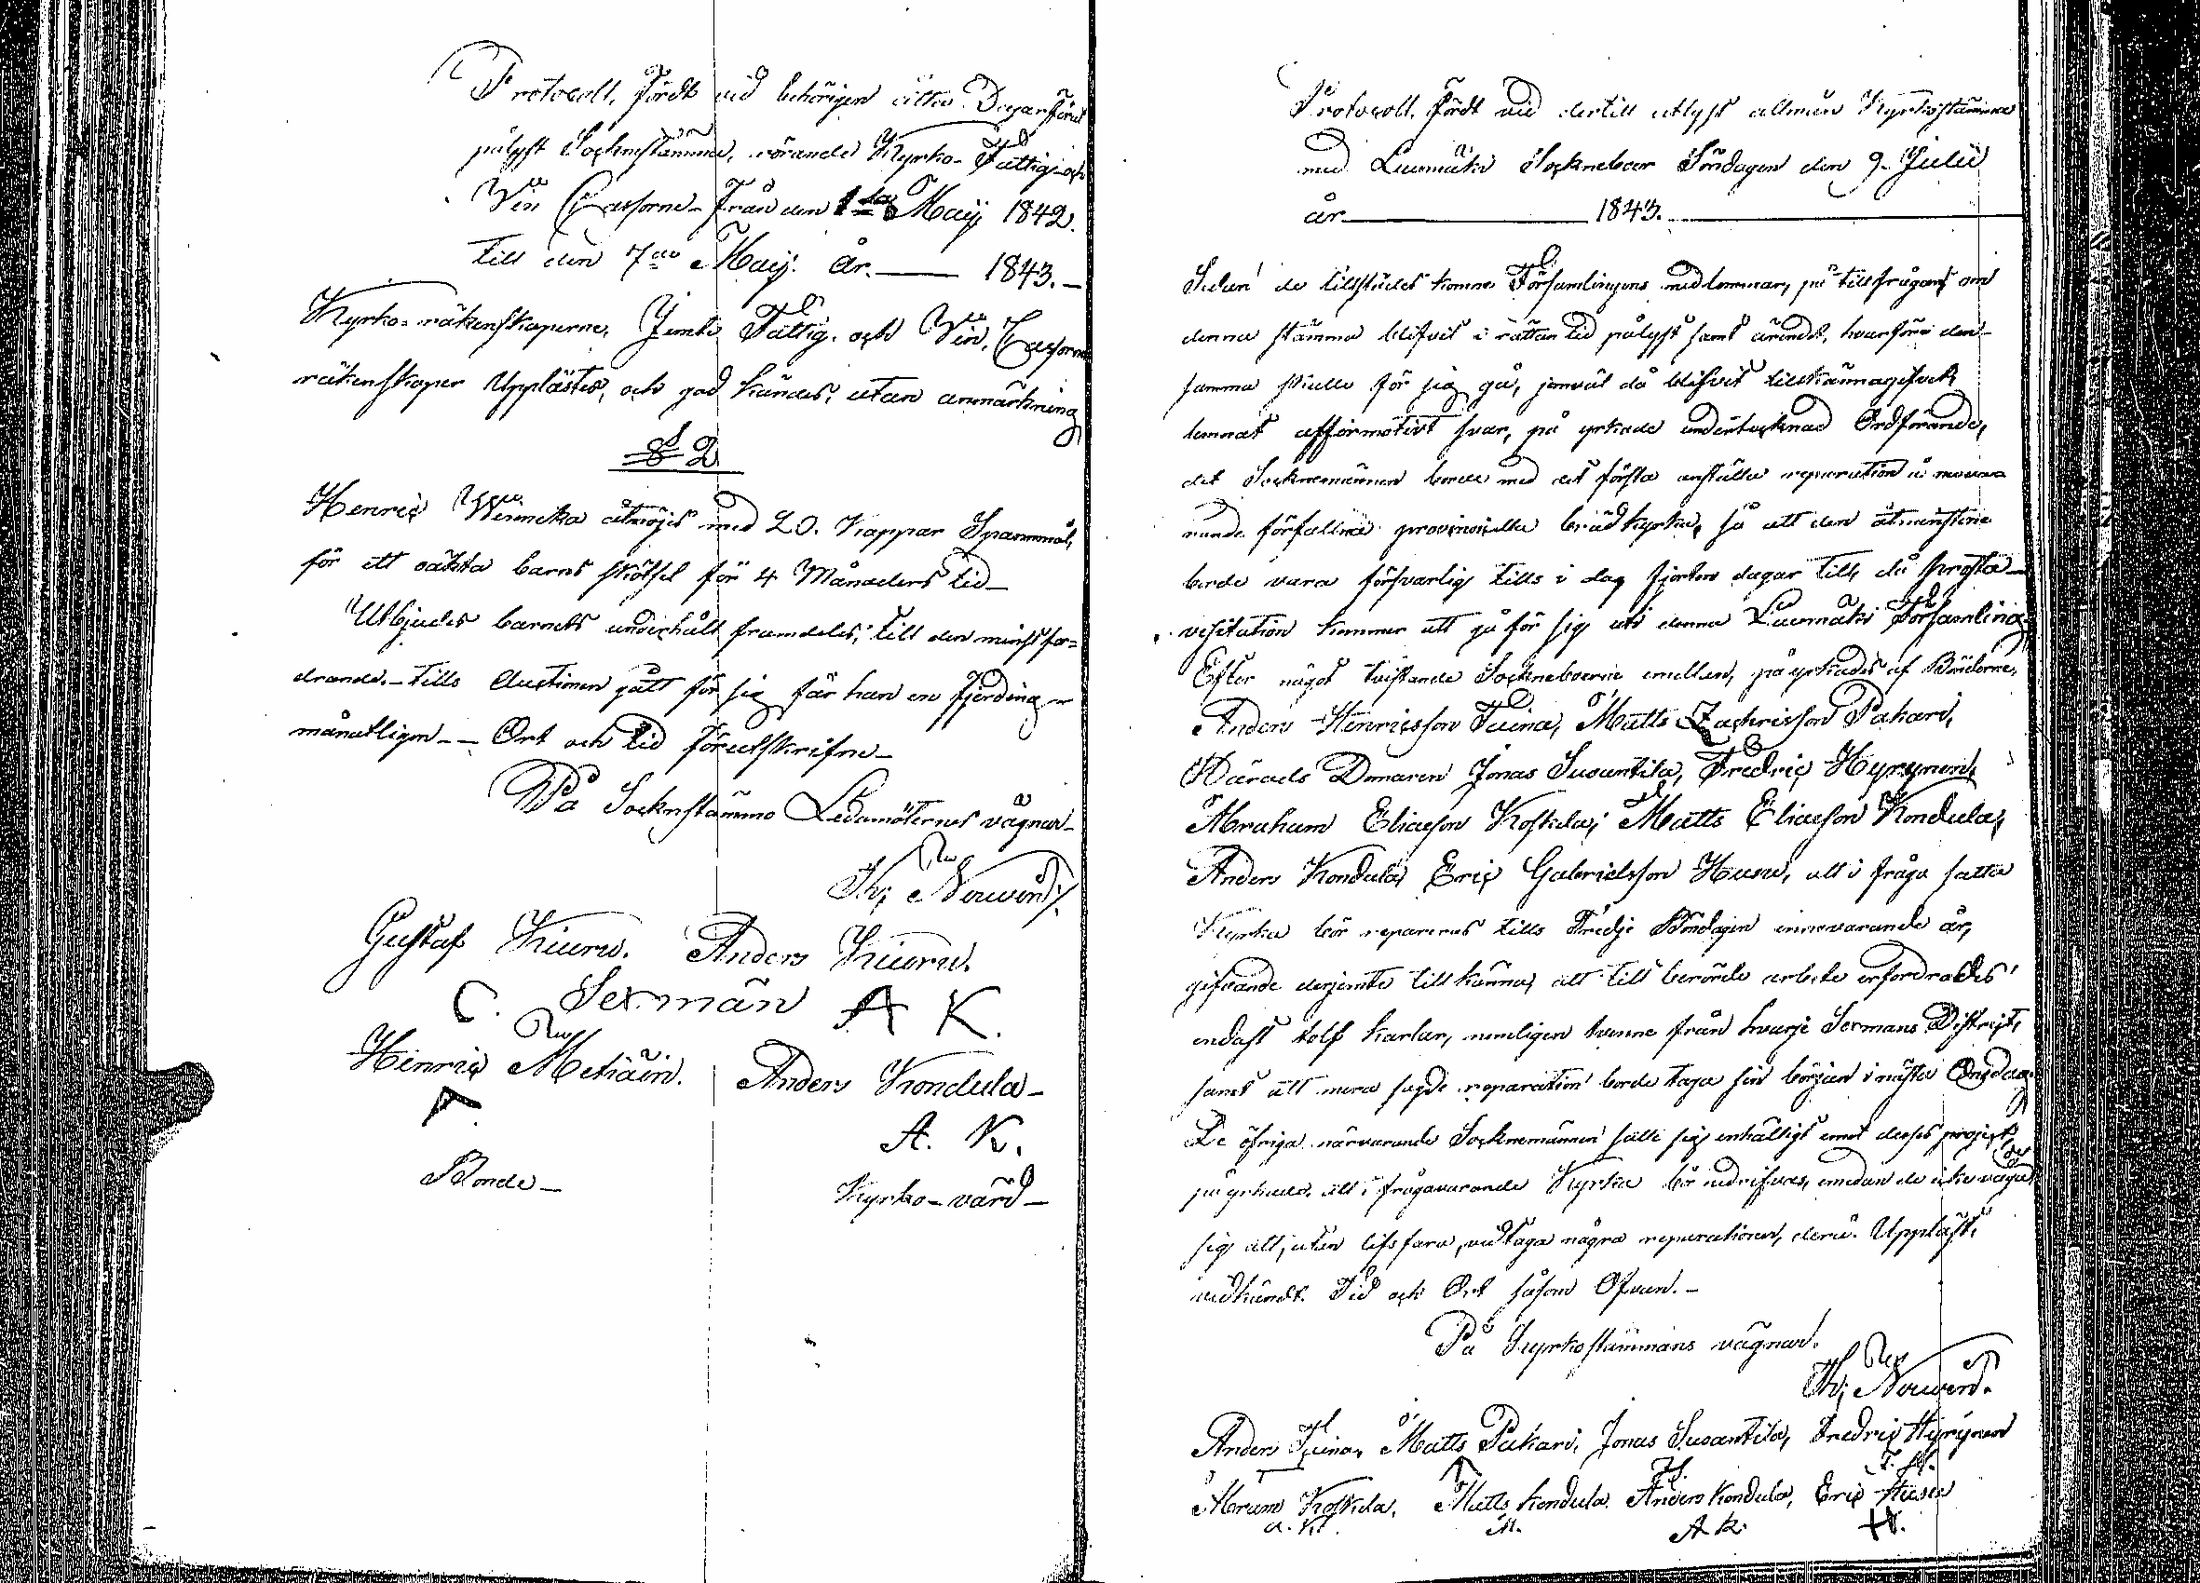 Protocoll, fördt vid behörigen åtta Dagar förut
pålyst Socknestämma, rörande Kyrko- Fattig- och
Vin Cassorne från den 1sta Maij 1842.
till den 7de Maij. år. — 1843. —
Kyrko-räkenskaperne, Jemte Fattig. och Vin, Cassorne
räkenskaper Upplästes, och god kändes, utan anmärkning
§ 2
Henric Winneka åtnöjes med 20. Kappar Spanmål,
för ett oäkta barns skötsel för 4 Månaders tid —
Utbjudes barnets underhåll framdeles, till den minst for-
drande. — tills Auctionen gått för sig får han en fjerding
månatligen — — Ort och tid föreutskrifne —
På Socknstämmo Ledamöternes vägnar —
Th: Norwind
Gustaf Kiuru. Anders Kiuru.
C. Sexman A K.
Henric Metiäin. Anders Kondula —
A. K.
Bonde — Kyrko-värd —
Protocoll, fördt vid dertill utlyst allmän Kyrkostämma
med Luumäki Socknebor Söndagen den 9. Julii
år — 1843. —
Sedan de tillstädes komne Församlingens medlemmar, på tillfrågan om
denna stämma blifvit i rättan tid pålyst samt ärendet, hvarföre den-
samma skulle för sig gå, jemväl då blifvit tillkännagifvet,
lemnat affirmativt svar, på yrkade undertecknad Ordförande,
det Socknemännen borde med det första anställa reparation å
förfallna provisionella brädkyrka, så att den åtminstone
borde vara försvarlig tills i dag fjorton dagar till, då prosta —
visitation kommer att gå för sig uti denna Luumäki Församling.
Efter något tvistande Sockneboerne emellan, på yrkades af Bönderne,
Anders Henricsson Tuina, Matts Zachrisson Pakari,
Härads Domaren Jonas Suoantila, Fredric Hyrynen,
Abraham Eliaeson Koskela, Matts Eliaeson Kondula,
Anders Kondula, Eric Gabrielsson Husu, att i fråga satta
Kyrka bör repareras tills Tredje Böndagen innevarande år,
gifvande derjemte tillkänna, att till berörde arbete erfordrades
endast tolf karlar, nemligen tvenne från hvarje Sexmans District,
samt att mera sagde reparation borde taga sin början i nästa Onsdag.
De öfriga närvarande Socknemännen satte sig enhälligt emot desses project,
påyrkade, att i frågavarande Kyrka bör nedrifvas, emedan de icke våga
sig att, utan lifsfara, vidtaga några reparationer, derå. Uppläst,
vidkändt. Tid och Ort såsom Ofvan. —
På Kyrkostämmans vägnar.
Th: Norwind.
Anders Tuina, Matts Pakari, Jonas Suoantila, Fredric Hyrynen
F. H.
Abram Koskela, Matts Kondula, Anders Kondula, Eric Husu
A. K. M. A K. H.